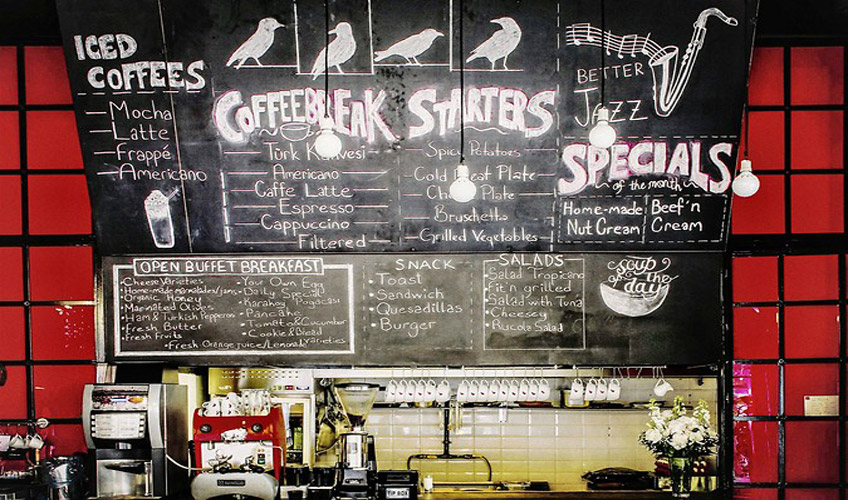 ICED
COFFEES
Mocha
Latte
Frappé
Americano
COFFEEBREAK
Türk Kahvesi
Americano
Caffe Latte
Espresso
Cappuccino
Filtered
STARTERS
Spicy Potatoes
Cold Meat Plate
Plate
Bruschetta
Grilled Vegetables
BETTER
JAZZ
SPECIALS
of the month
Home-made
Nut Cream
Beef'n
Cream
OPEN BUFFET BREAKFAST
Cheese Varieties
Home-made marmalades/jams
Organic Honey
Marinated Olives
Ham & Turkish Pepperoni
Fresh Butter
Fresh Fruits
Your Own Egg
Daily Special
Karaköy Pogacasi
Pancake
Tomato & Cucumber
Cookie & Bread
Fresh Orange juice/Lemonade varieties
SNACK
Toast
Sandwich
Quesadillas
Burger
SALADS
Salad Tropicano
Fit'n grilled
Salad with Tuna
Cheesey
Rucola Salad
Soup of the
day
TIP BOX